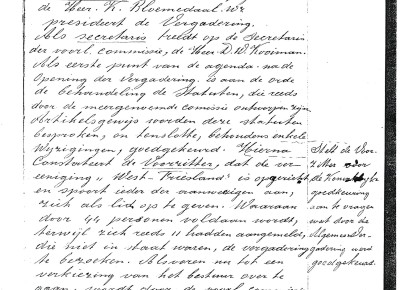 de Heer. K. Bloemedaal. Wr
presideert de Vergadering.
Als secretaris treedt op de Secretaris
der voorl. commissie, de Heer D. W. Kooiman.
Als eerste punt van de agenda na de
Opening der Vergadering is aan de orde
de behandeling de Statuten, die reeds
door de meergenoemde comissie ontworpen zijn
Artikelsgewijs worden deze statuten
besproken, en tenslotte, behoudens enkele
Wijzigingen, goedgekeurd. Hierna
Constateert de Voorzitter, dat de ver-
eeniging "West-Friesland" is opgericht
en spoort ieder der aanwezigen aan,
zich als lid op te geven. Waaraan
door 44 personen voldaan wordt,
terwijl zich reeds 11 hadden aangemeld,
die niet in staat waren, de vergadering
te bezoeken. Alsvoren nu tot een
verkiezing van het bestuur over te
gaan, wordt door de voorl.
Stelt de Voor-
z. Mer voor
de Kon.
goedkeuring
aan te vragen
wat door de
Algemeene Ver-
gadering word
goedgekeurd.